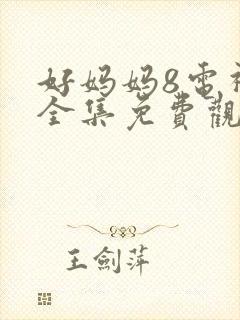 好妈妈8电视
全集免費觀
王劍萍